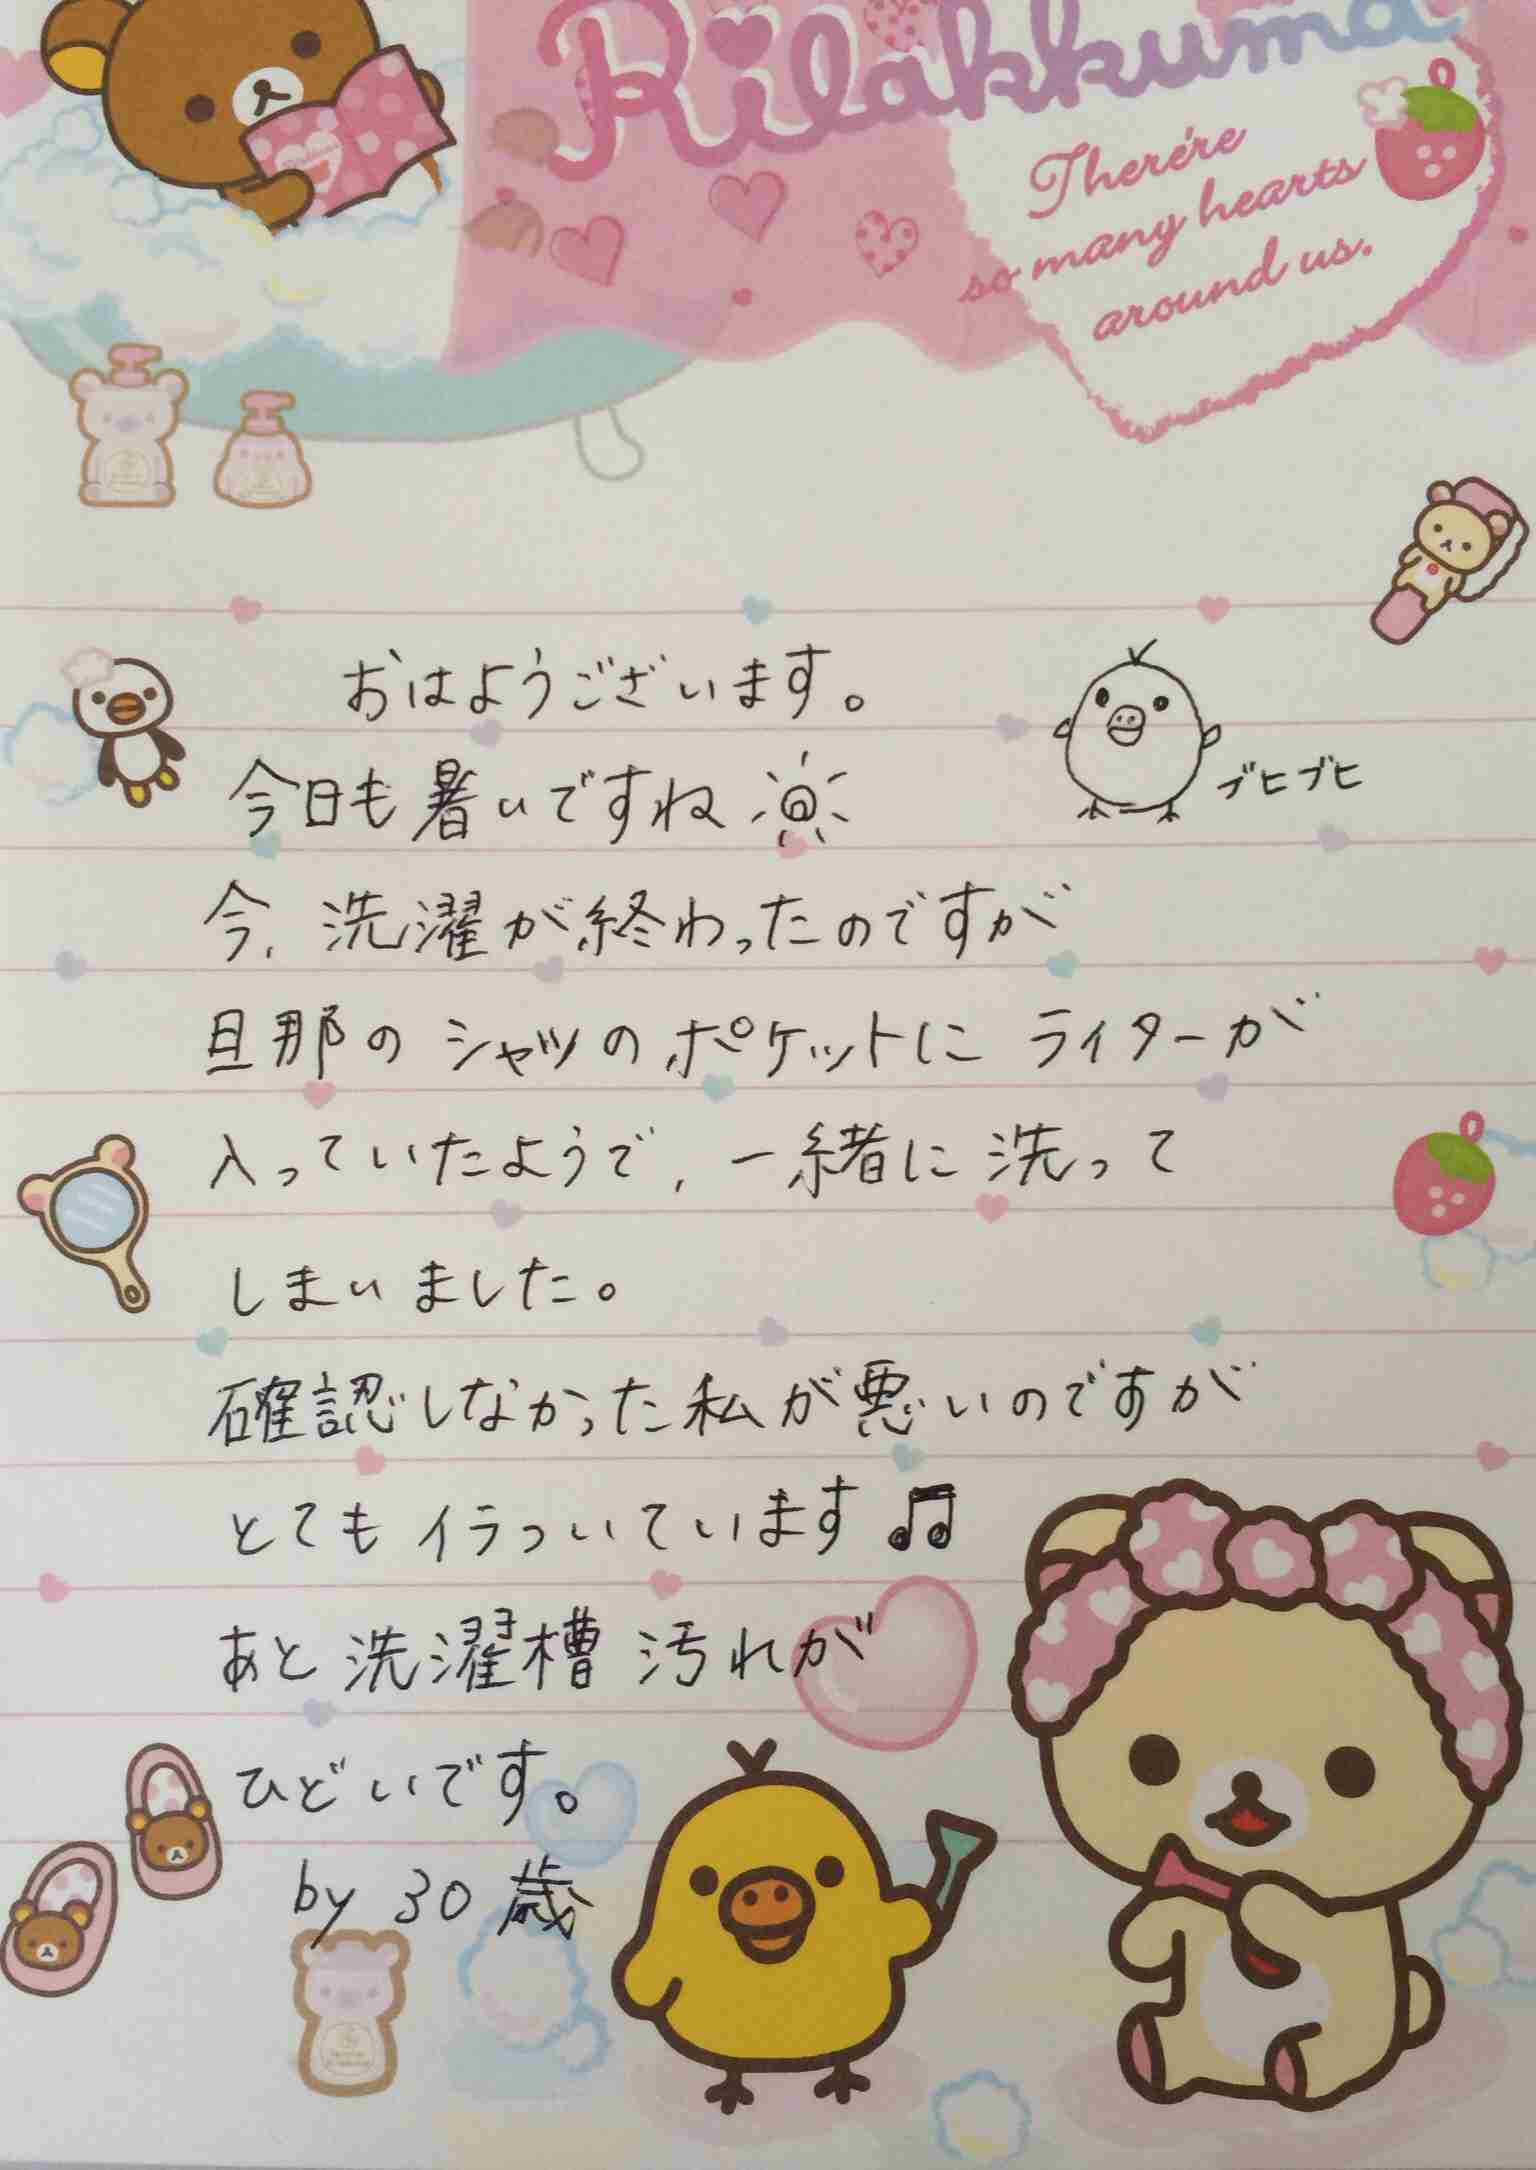 Rilakkuma
There're
so many hearts
around us.
おはようございます。
ブヒブヒ
今日も暑いですね
今、洗濯が終わったのですが
旦那のシャツのポケットにライターが
入っていたようで、一緒に洗って
しまいました。
確認しなかった私が悪いのですが
とてもイラついています♫
あと洗濯槽汚れが
ひどいです。
by 30歳